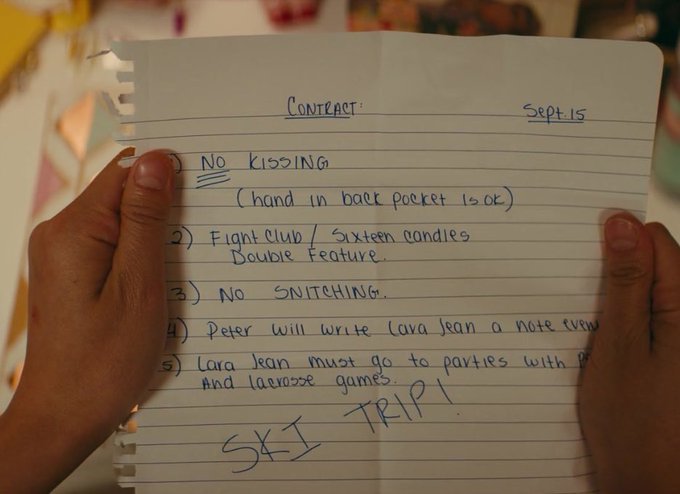 CONTRACT: Sept. 15
) NO KISSING
(hand in back pocket is ok)
2) Fight Club / Sixteen candles
Double Feature.
3) NO SNITCHING.
4) Peter will write Lara Jean a note
5) Lara Jean must go to parties with
And lacrosse games.
SKI TRIP!